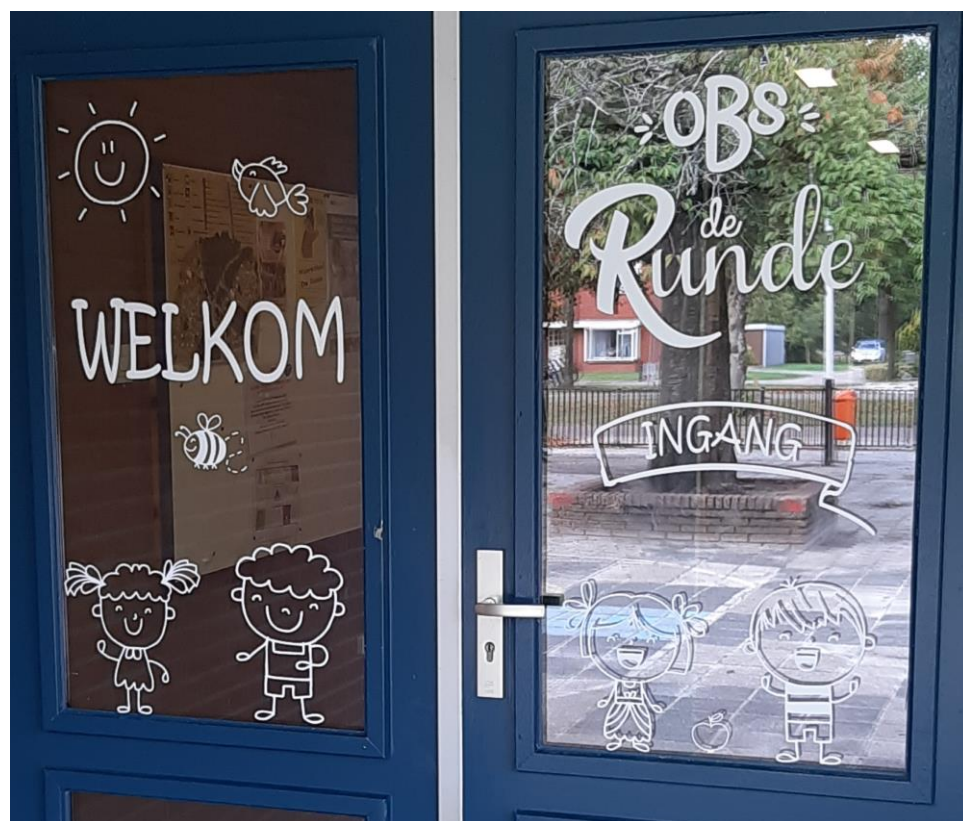 WELKOM
OBS
de
Runde
INGANG